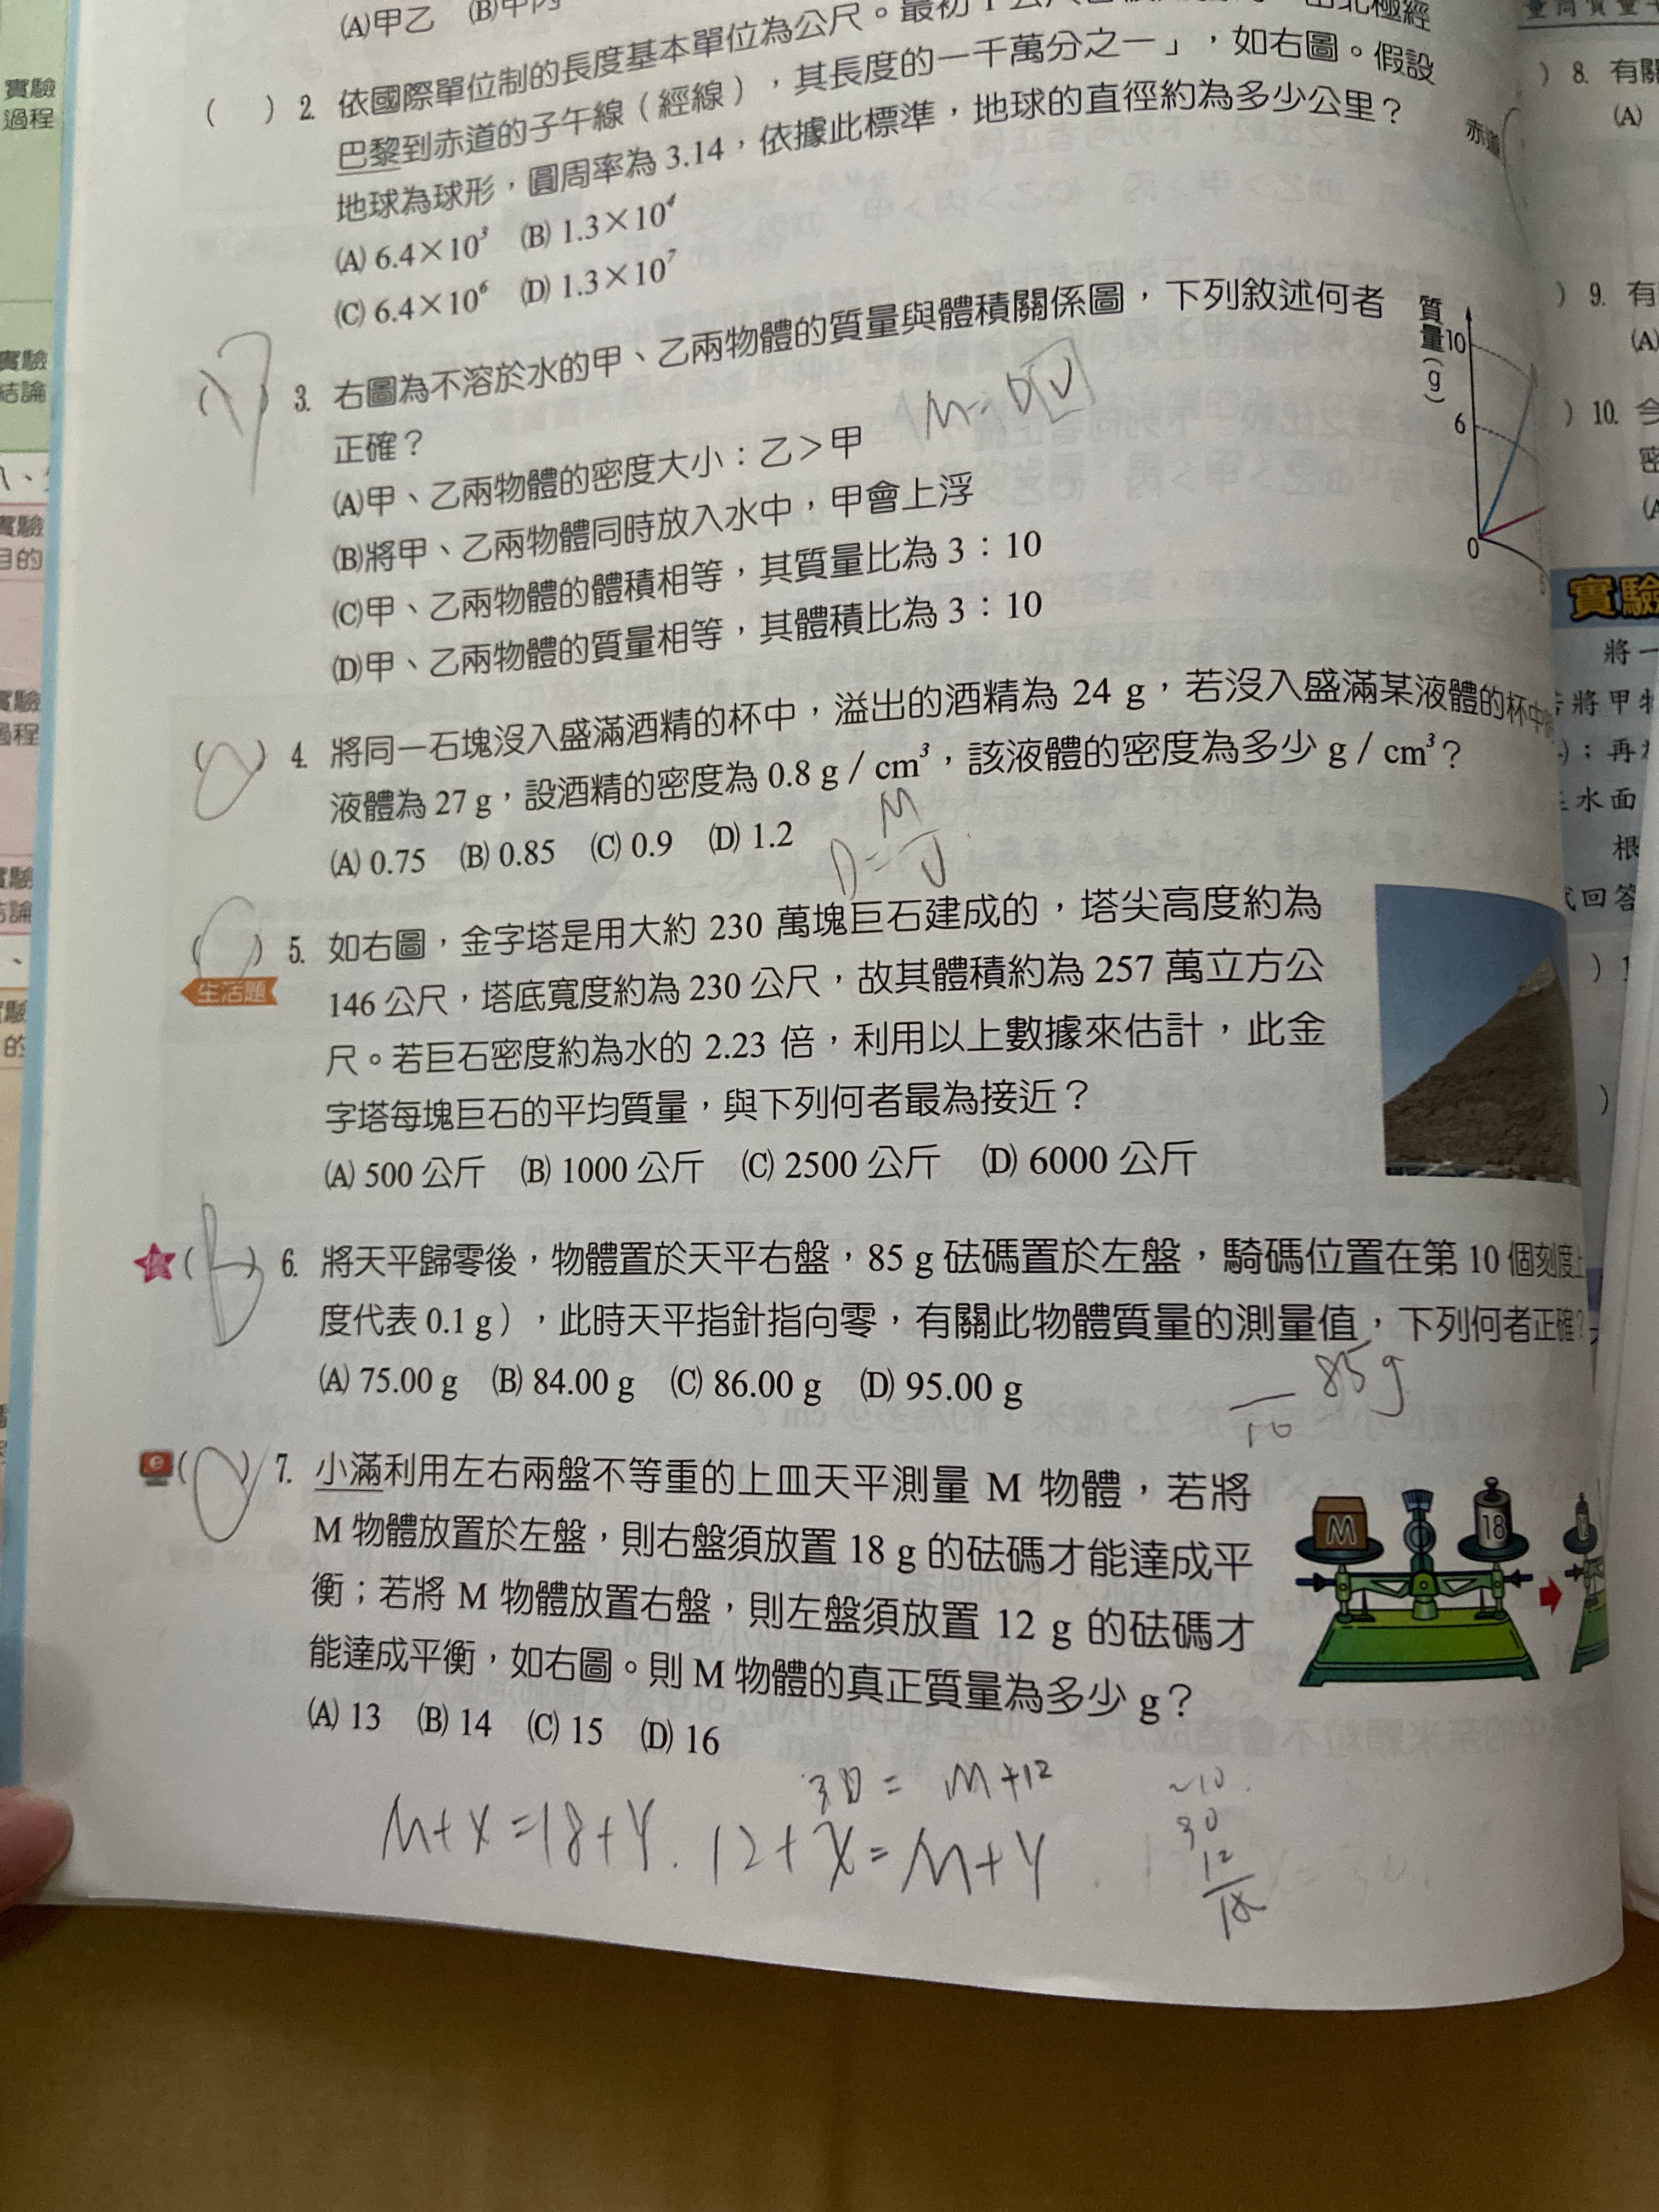 (A)甲乙 (B)甲丙
( ) 2. 依國際單位制的長度基本單位為公尺。最初1公尺
北極經
巴黎到赤道的子午線(經線),其長度的一千萬分之一」,如右圖。假設
地球為球形,圓周率為3.14,依據此標準,地球的直徑約為多少公里?
(A) 6.4×10³ (B) 1.3×10⁴
(C) 6.4×10⁶ (D) 1.3×10⁷
赤道
( ) 3. 右圖為不溶於水的甲、乙兩物體的質量與體積關係圖,下列敘述何者
正確?
(A)甲、乙兩物體的密度大小:乙>甲
(B)將甲、乙兩物體同時放入水中,甲會上浮
(C)甲、乙兩物體的體積相等,其質量比為3:10
(D)甲、乙兩物體的質量相等,其體積比為3:10
質量(g)
10
6
0
5
( ) 4. 將同一石塊沒入盛滿酒精的杯中,溢出的酒精為24 g,若沒入盛滿某液體的杯中
液體為27 g,設酒精的密度為0.8 g/cm³,該液體的密度為多少g/cm³?
(A) 0.75 (B) 0.85 (C) 0.9 (D) 1.2
D=M/V
(C) 5. 如右圖,金字塔是用大約230萬塊巨石建成的,塔尖高度約為
生活題
146公尺,塔底寬度約為230公尺,故其體積約為257萬立方公
尺。若巨石密度約為水的2.23倍,利用以上數據來估計,此金
字塔每塊巨石的平均質量,與下列何者最為接近?
(A) 500公斤 (B) 1000公斤 (C) 2500公斤 (D) 6000公斤
(B) 6. 將天平歸零後,物體置於天平右盤,85 g砝碼置於左盤,騎碼位置在第10個刻度上
度代表0.1 g),此時天平指針指向零,有關此物體質量的測量值,下列何者正確?
(A) 75.00 g (B) 84.00 g (C) 86.00 g (D) 95.00 g
85g
10
( ) 7. 小滿利用左右兩盤不等重的上皿天平測量M物體,若將
M物體放置於左盤,則右盤須放置18 g的砝碼才能達成平
衡;若將M物體放置右盤,則左盤須放置12 g的砝碼才
能達成平衡,如右圖。則M物體的真正質量為多少g?
(A) 13 (B) 14 (C) 15 (D) 16
M
18
30 = M+12
M+X=18+Y. 12+X=M+Y
30
12
18
實驗
過程
實驗
結論
實驗
目的
實驗
過程
) 8. 有關
(A)
) 9. 有
(A)
) 10. 今
密
實驗
將一
將甲物
水面
根
回答